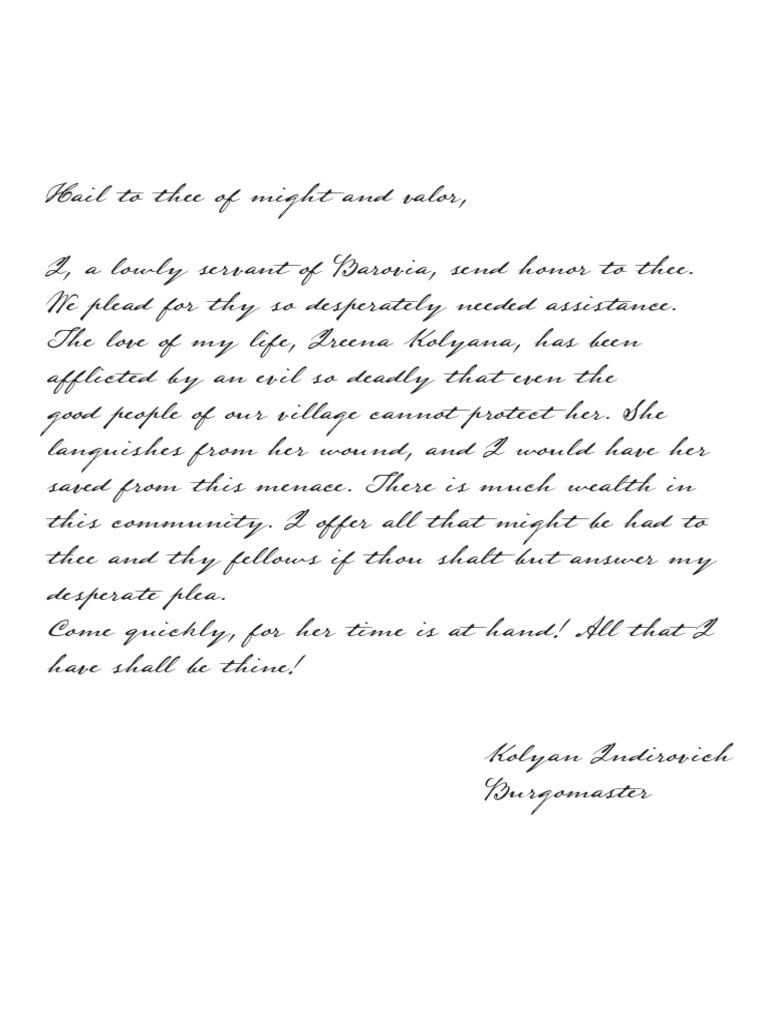 Hail to thee of might and valor,
I, a lowly servant of Barovia, send honor to thee.
We plead for thy so desperately needed assistance.
The love of my life, Ireena Kolyana, has been
afflicted by an evil so deadly that even the
good people of our village cannot protect her. She
languishes from her wound, and I would have her
saved from this menace. There is much wealth in
this community. I offer all that might be had to
thee and thy fellows if thou shalt but answer my
desperate plea.
Come quickly, for her time is at hand! All that I
have shall be thine!
Kolyan Indirovich
Burgomaster